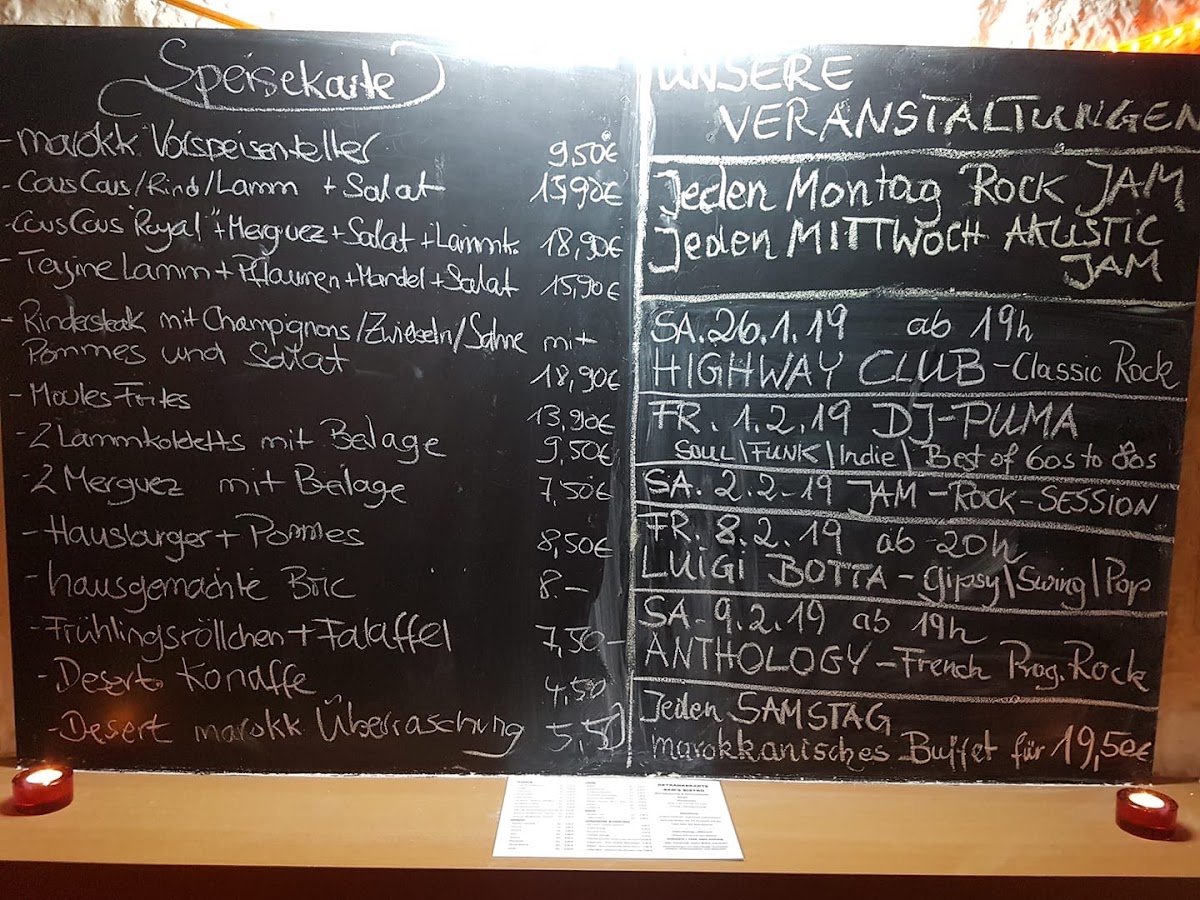 Speisekarte
- marokk Vorspeisenteller 9,50€
- CousCous/Rind/Lamm + Salat 15,90€
- CousCous "Royal" + Merguez + Salat + Lammk. 18,90€
- Tajine Lamm + Pflaumen + Mandel + Salat 15,90€
- Rindersteak mit Champignons/Zwiebeln/Sahne mit
Pommes und Salat 18,90€
- Moules Frites 13,90€
- 2 Lammkoteletts mit Beilage 9,50€
- 2 Merguez mit Beilage 7,50€
- Hausburger + Pommes 8,50€
- hausgemachte Bric 8.-
- Frühlingsröllchen + Falaffel 7,50.-
- Desert Konaffe 4,50
- Desert marokk Überraschung 5,50
UNSERE
VERANSTALTUNGEN
Jeden Montag Rock JAM
Jeden MITTWOCH AKUSTIC
JAM
SA. 26.1.19 ab 19h
HIGHWAY CLUB - Classic Rock
FR. 1.2.19 DJ-PUMA
SOUL\FUNK\Indie\Best of 60s to 80s
SA. 2.2-19 JAM-ROCK-SESSION
FR. 8.2.19 ab 20h
LUIGI BOTTA - Gipsy\Swing\Pop
SA. 9.2.19 ab 19h
ANTHOLOGY - French Prog. Rock
Jeden SAMSTAG
marokkanisches Buffet für 19,50€
GETRÄNKEKARTE
SAM'S BISTRO